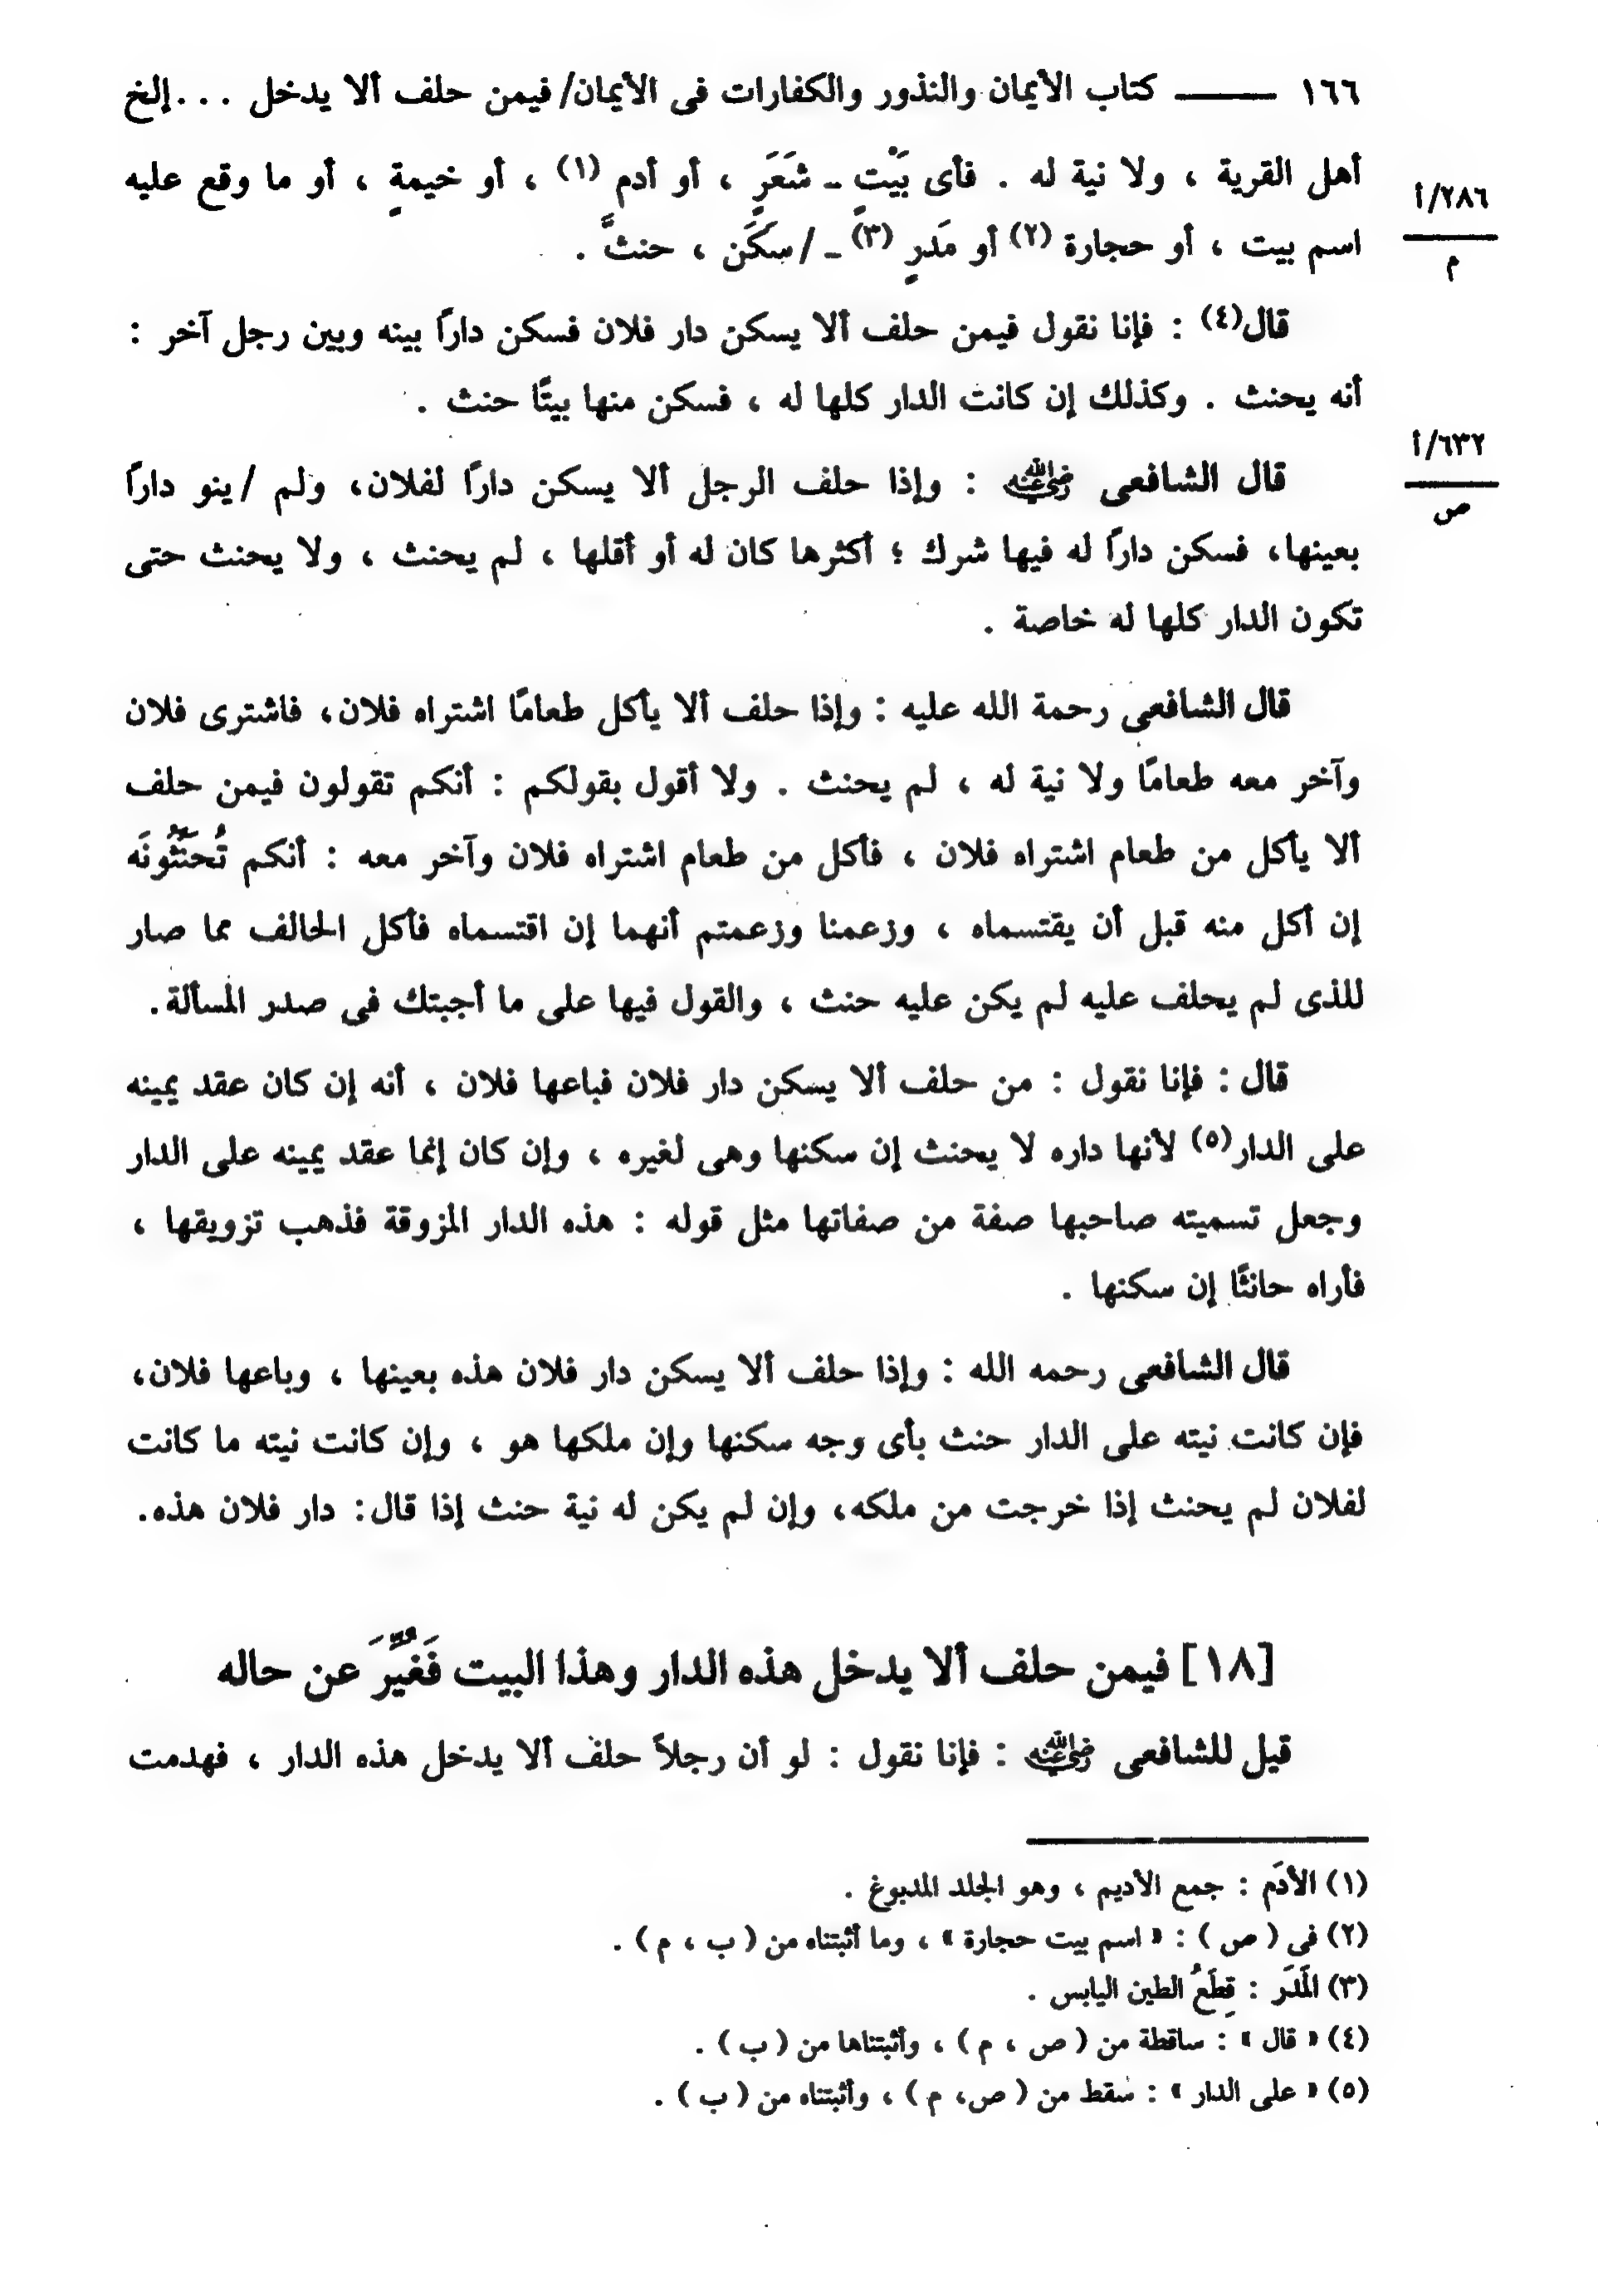 ١٦٦ ـــــ كتاب الأيمان والنذور والكفارات فى الأيمان/ فيمن حلف ألا يدخل ...إلخ
أهل القرية ، ولا نية له . فأى بَيْتٍ ـ شَعَرٍ ، أو أدم (١) ، أو خيمةٍ ، أو ما وقع عليه
٢٨٦/أ
م
اسم بيت ، أو حجارة (٢) أو مَدرٍ (٣) ـ /سكَن ، حنثَ .
قال(٤) : فإنا نقول فيمن حلف ألا يسكن دار فلان فسكن دارًا بينه وبين رجل آخر :
أنه يحنث . وكذلك إن كانت الدار كلها له ، فسكن منها بيتًا حنث .
٦٣٢/أ
ص
قال الشافعى رضي الله عنه : وإذا حلف الرجل ألا يسكن دارًا لفلان، ولم /ينو دارًا
بعينها، فسكن دارًا له فيها شرك ؛ أكثرها كان له أو أقلها ، لم يحنث ، ولا يحنث حتى
تكون الدار كلها له خاصة .
قال الشافعى رحمة الله عليه : وإذا حلف ألا يأكل طعامًا اشتراه فلان، فاشترى فلان
وآخر معه طعامًا ولا نية له ، لم يحنث . ولا أقول بقولكم : أنكم تقولون فيمن حلف
ألا يأكل من طعام اشتراه فلان ، فأكل من طعام اشتراه فلان وآخر معه : أنكم تُحَنِّثُونَه
إن أكل منه قبل أن يقتسماه ، وزعمنا وزعمتم أنهما إن اقتسماه فأكل الحالف مما صار
للذى لم يحلف عليه لم يكن عليه حنث ، والقول فيها على ما أجبتك فى صدر المسألة.
قال : فإنا نقول : من حلف ألا يسكن دار فلان فباعها فلان ، أنه إن كان عقد يمينه
على الدار(٥) لأنها داره لا يحنث إن سكنها وهى لغيره ، وإن كان إنما عقد يمينه على الدار
وجعل تسميته صاحبها صفة من صفاتها مثل قوله : هذه الدار المزوقة فذهب تزويقها ،
فأراه حانثًا إن سكنها .
قال الشافعى رحمه الله : وإذا حلف ألا يسكن دار فلان هذه بعينها ، وباعها فلان،
فإن كانت نيته على الدار حنث بأى وجه سكنها وإن ملكها هو ، وإن كانت نيته ما كانت
لفلان لم يحنث إذا خرجت من ملكه، وإن لم يكن له نية حنث إذا قال: دار فلان هذه.
[١٨] فيمن حلف ألا يدخل هذه الدار وهذا البيت فَغُيِّرَ عن حاله
قيل للشافعى رضي الله عنه : فإنا نقول : لو أن رجلاً حلف ألا يدخل هذه الدار ، فهدمت
(١) الأدَم : جمع الأديم ، وهو الجلد المدبوغ .
(٢) فى ( ص ) : « اسم بيت حجارة » ، وما أثبتناه من ( ب ، م ) .
(٣) المَدَر : قِطَعُ الطين اليابس .
(٤) « قال » : ساقطة من ( ص ، م ) ، وأثبتناها من ( ب ) .
(٥) « على الدار » : سقط من ( ص، م ) ، وأثبتناه من ( ب ) .